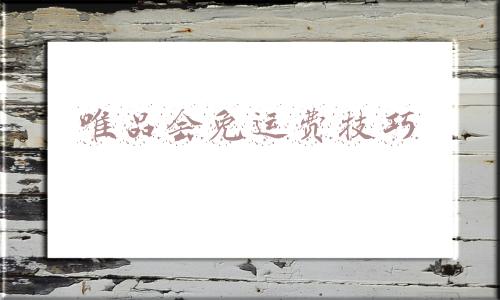 唯品会免运费技巧